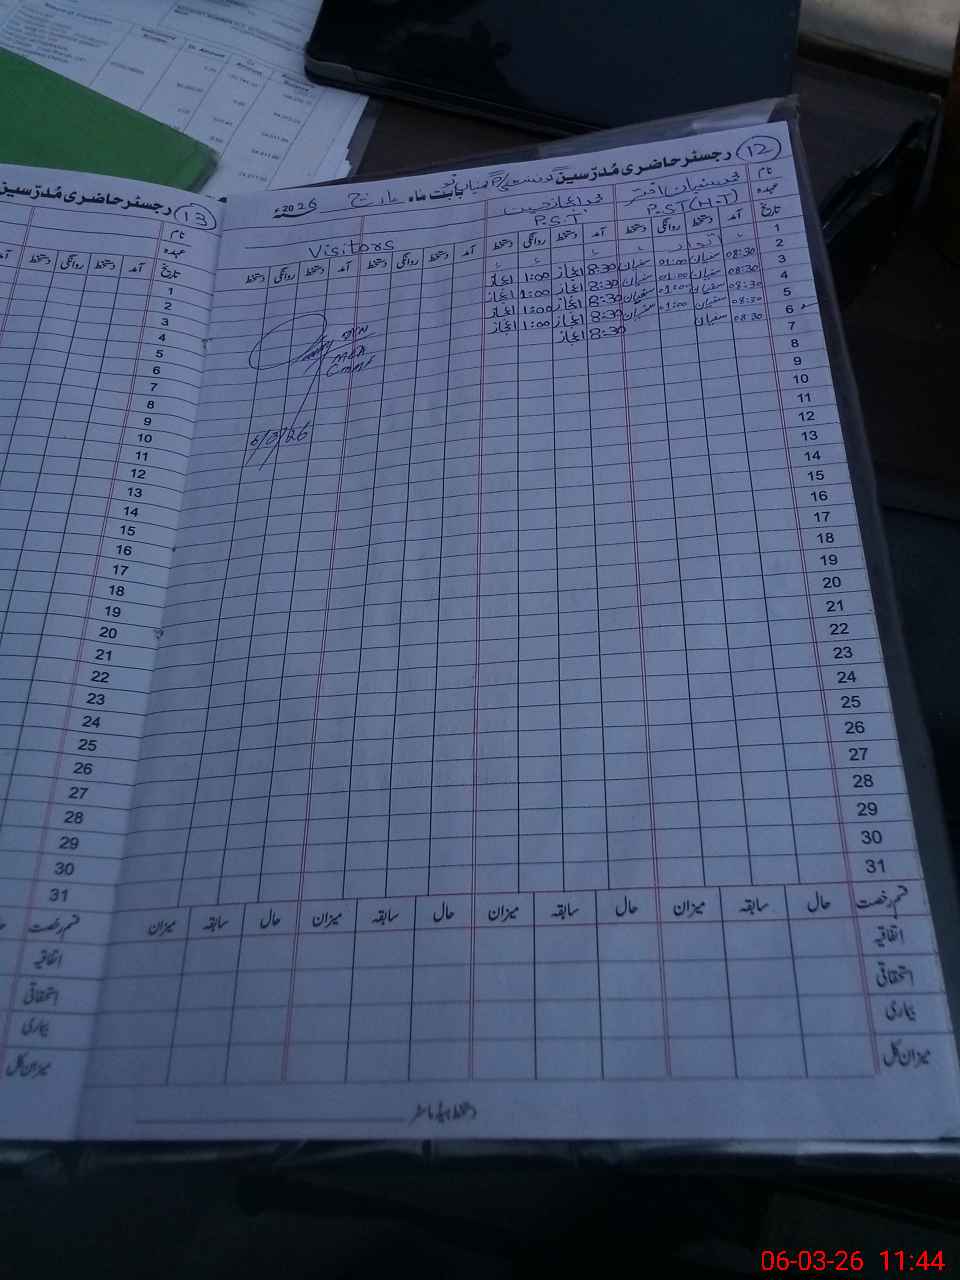 رجسٹر حاضری مُدرّسین
12
بابت ماہ مارچ 2026ء
نام
محمد سفیان اختر
محمد اعجاز
Visitors
عہدہ
P.ST (H.T)
P.S.T
تاریخ
آمد دستخط روانگی دستخط آمد دستخط روانگی دستخط آمد دستخط روانگی دستخط آمد دستخط روانگی دستخط
1
2 اتوار
3 08:30 سفیان 01:00 سفیان 8:30 اعجاز 1:00 اعجاز
4 08:30 سفیان 01:00 سفیان 8:30 اعجاز 1:00 اعجاز
5 08:30 سفیان 01:00 سفیان 8:30 اعجاز 1:00 اعجاز
6 08:30 سفیان 01:00 سفیان 8:30 اعجاز 1:00 اعجاز
7 08:30 سفیان 8:30 اعجاز
8
9
10
11
12
13
14
15
16
17
18
19
20
21
22
23
24
25
26
27
28
29
30
31
قسم رخصت حال سابقہ میزان حال سابقہ میزان حال سابقہ میزان حال سابقہ میزان
اتفاقیہ
استحقاقی
بیماری
میزان کل
دستخط ہیڈ ماسٹر
رجسٹر حاضری مُدرّسین
13
نام
عہدہ
تاریخ
آمد دستخط روانگی دستخط
1
2
3
4
5
6
7
8
9
10
11
12
13
14
15
16
17
18
19
20
21
22
23
24
25
26
27
28
29
30
31
قسم رخصت
اتفاقیہ
استحقاقی
بیماری
میزان کل
06-03-26 11:44